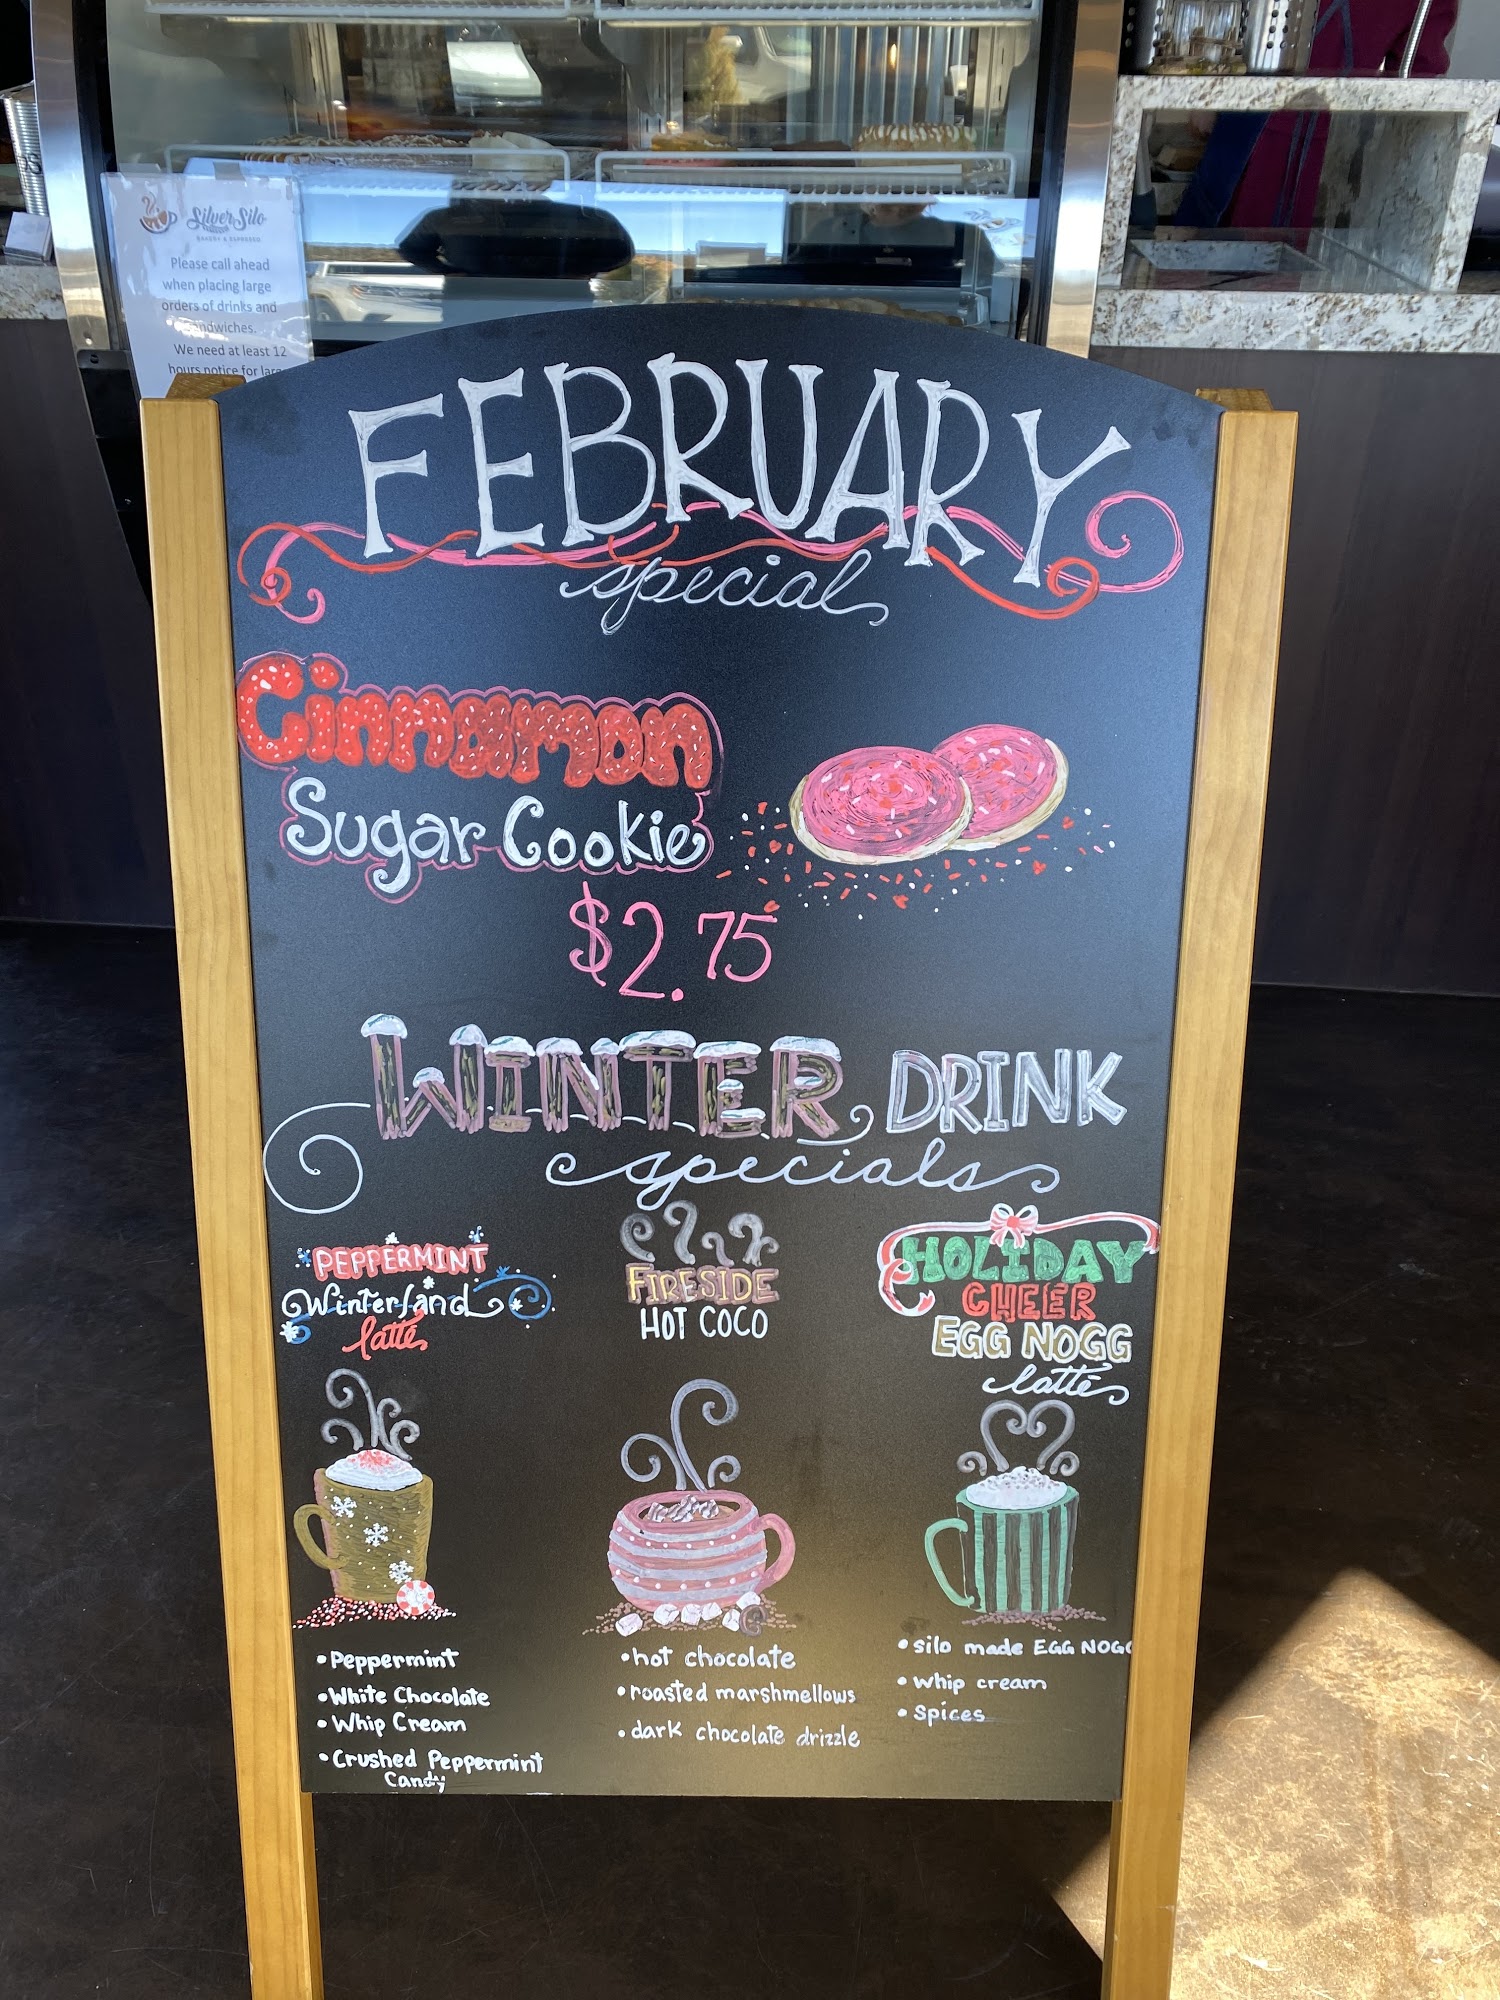 Silver Silo
BAKERY & ESPRESSO
Please call ahead
when placing large
orders of drinks and
sandwiches.
We need at least 12
hours notice for
FEBRUARY
special
Cinnamon
Sugar Cookie
$2.75
WINTER DRINK
specials
PEPPERMINT
Winterland
latte
FIRESIDE
HOT COCO
HOLIDAY
CHEER
EGG NOGG
latte
•Peppermint
•White Chocolate
•Whip Cream
•Crushed Peppermint
Candy
•hot chocolate
•roasted marshmellows
•dark chocolate drizzle
•silo made EGG NOGG
•whip cream
•Spices